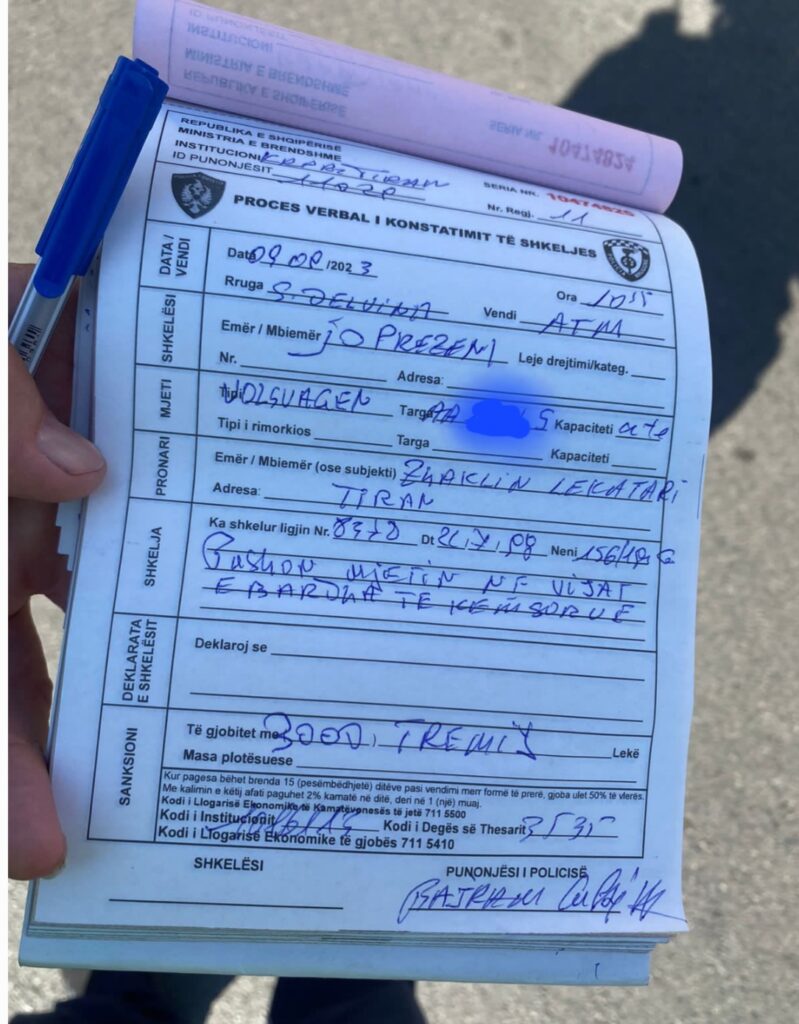 REPUBLIKA E SHQIPËRISË
MINISTRIA E BRENDSHME
INSTITUCIONI
SERIA NR. 10474824
REPUBLIKA E SHQIPËRISË
MINISTRIA E BRENDSHME
INSTITUCIONI TIRAN
ID PUNONJËSIT
SERIA NR.
Nr. Regj. 11
PROCES VERBAL I KONSTATIMIT TË SHKELJES
DATA / VENDI
Data 09 /2023 Ora
Rruga S. DELVINA Vendi ATM
SHKELËSI
Emër / Mbiemër JO PREZENT Leje drejtimi/kateg.
Nr. Adresa:
MJETI
Tipi VOLSVAGEN Targa AA S Kapaciteti
Tipi i rimorkios Targa Kapaciteti
PRONARI
Emër / Mbiemër (ose subjekti) ZHAKLIN LEKATARI
Adresa: TIRAN
SHKELJA
Ka shkelur ligjin Nr. 8378 Dt Neni
Pushon MJETIN NE VIJAT
E BARDHA TE KEMSORVE
DEKLARATA E SHKELËSIT
Deklaroj se
SANKSIONI
Të gjobitet me 3000, TREMIJ Lekë
Masa plotësuese
Kur pagesa bëhet brenda 15 (pesëmbëdhjetë) ditëve pasi vendimi merr formë të prerë, gjoba ulet 50% të vlerës.
Me kalimin e këtij afati paguhet 2% kamatë në ditë, deri në 1 (një) muaj.
Kodi i Llogarisë Ekonomike të Kamatëvonesës të jetë 711 5500
Kodi i Institucionit Kodi i Degës së Thesarit 3535
Kodi i Llogarisë Ekonomike të gjobës 711 5410
SHKELËSI PUNONJËSI I POLICISË
BAJRAM